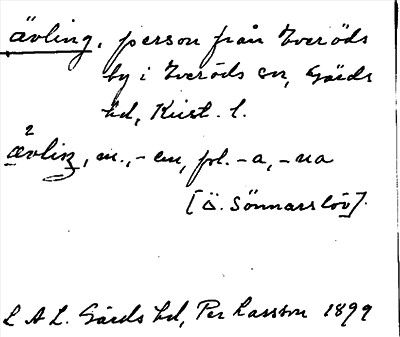 ävling, person från Everöds
by i Everöds sn, Gärds
hd, Krist. l.
²ävliŋ, m., -en, pl. -a, -na
[Ö. Sönnarslöv].
L A L. Gärds hd, Per Larsson 1899